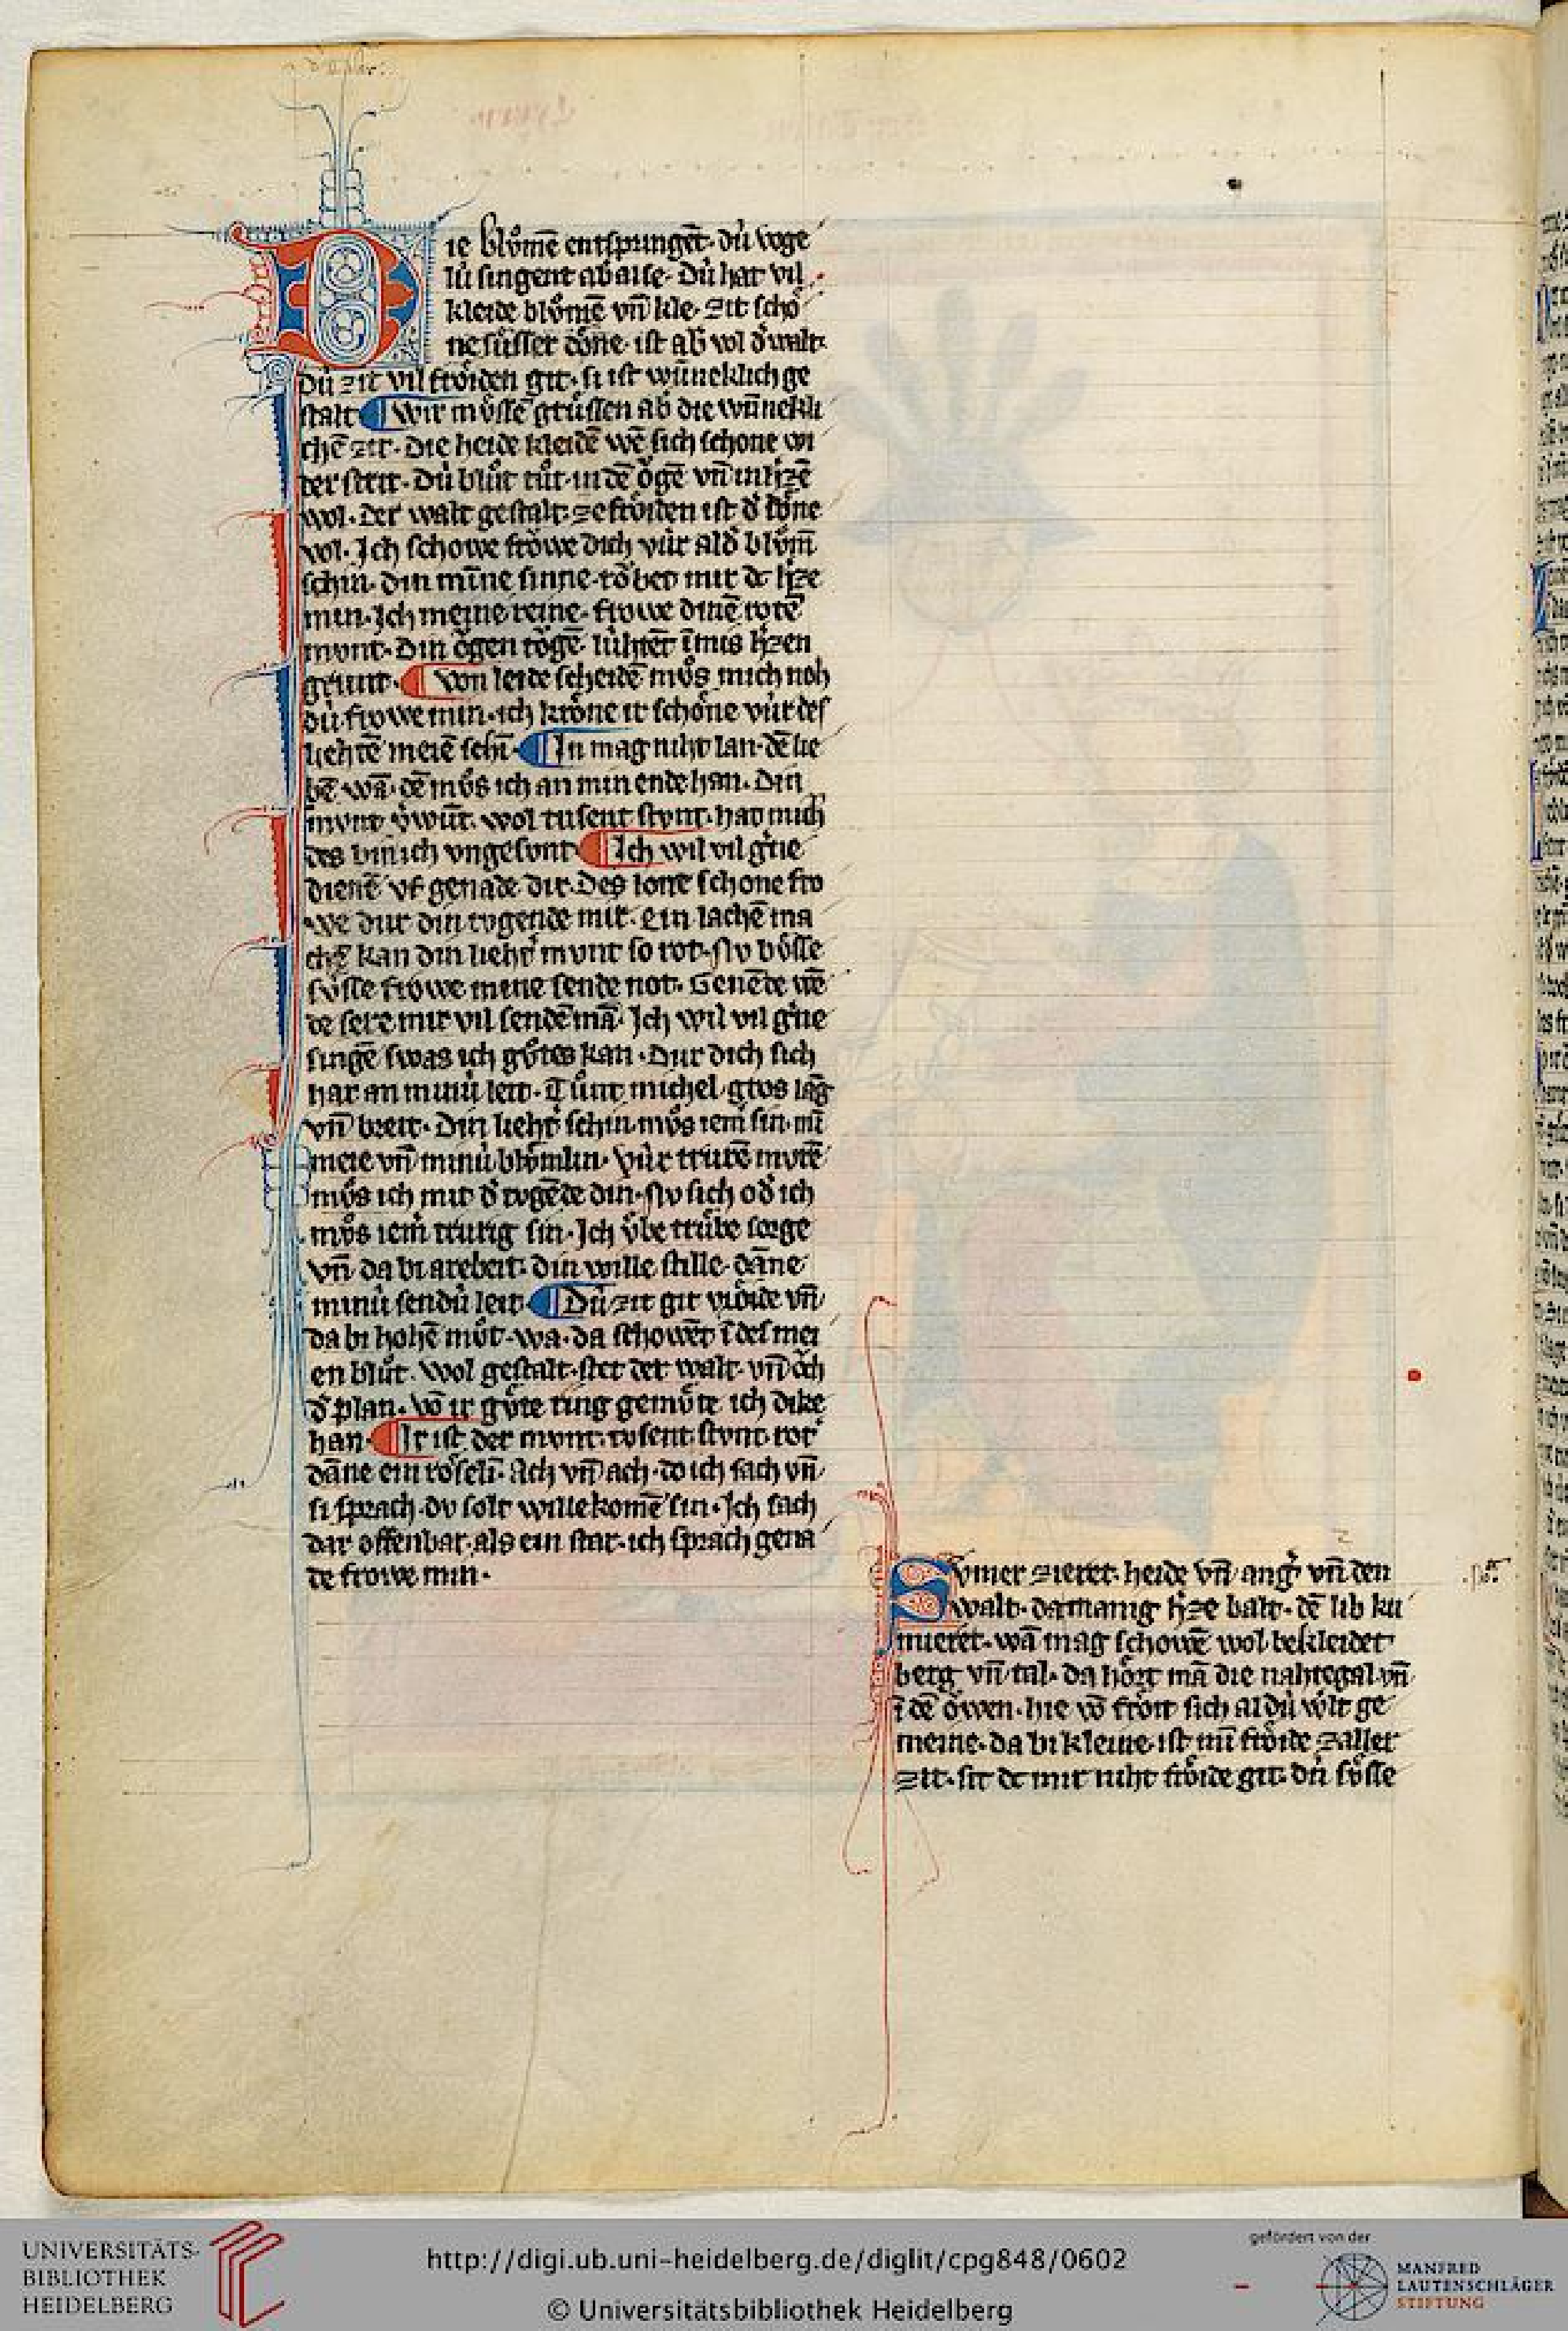 Die blůmē entspringēt· dú voge
lú singent ab aise· dú hat vil
kleide blůmē vn̄ kle· zit schȯ
ne sůsser dōne· ist ab wol d̓ walt·
dú zit vil frȯiden git· si ist wūneklich ge
stalt wir můssē grůssen ab die wūnekli
chē zit· die heide kleidē wē sich schone wi
der strit· dú blůt tůt· in dē ȯgē vn̄ in h̓zē
wol· der walt gestalt· ze frȯiden ist d̓ dȯne
vol· Ich schowe frowe dich vúr al d̓ blům̄
schin· din mīne sinne· rȯbet mir dc h̓ze
min· Ich meine reine· frowe dinē rotē
mvnt· din ȯgen tȯgē· lúhtēt īmis h̓zen
grunt· von leide scheidē můs mich noh
dú frowe min· ich krȯne ir schȯne vúr des
liehtē meiē schī· In mag niht lan· dē lie
bē wā· dē můs ich an min ende han· din
mvnt v̓wūt· wol tusent stvnt· hat mich
des bin ich vngesvnt Ich wil vil g̓ne
dienē vf genade dir· Des lone schone fro
we dur din tvgende mir· ein lachē ma
chē kan din lieht̓ mvnt so rot· Nv bůsse
sůsse frowe mine sende not· Genēde wē
de sere mir vil sendē mā· Ich wil vil g̓ne
singē swas ich gůtes kan· Dur dich sich
har an minú leit· Tůnt michel gros lāg
vn̄ breit· Din lieht̓ schin· můs iem̓ sin· mī
meie vn̄ minú blůmlin· vúr trurē mvtē
můs ich mit d̓ tvgēde din· Nv sich od̓ ich
můs iem̓ trurig sin· Ich ůbe trůbe sorge
vn̄ da bi arebeit· din wille stille· dāne
minú sendú leit Dú zit git vrȯide vn̄
da bi hohē můt· wa· da schowēt ī des mei
en blůt· wol gestalt· stet der walt· vn̄ ȯch
d̓ plan· vō ir gůte ring gemůte ich dike
han· Ir ist der mvnt· tvsent stvnt· rot̓
dāne ein rȯselī· Ach vn̄ ach· do ich sach vn̄
si sprach· dv solt willekomē sin· Ich sach
dar offenbar· als ein star· ich sprach gena
de frowe min·
Svmer zieret· heide vn̄ ang̓ vn̄ den
walt· da manig h̓ze balt· dē lib ku
mieret· wā mag schowē wol bekleidet
berg vn̄ tal· da hȯrt mā die nahtegal· vn̄
ī dē ȯwen· hie vō frȯit sich al dú wlt ge
meine· da bi kleine· ist mī frȯide zaller
zit· sit dc mir niht frȯide git· dú sůsse
UNIVERSITÄTS-
BIBLIOTHEK
HEIDELBERG
http://digi.ub.uni-heidelberg.de/diglit/cpg848/0602
© Universitätsbibliothek Heidelberg
gefördert von der
MANFRED
LAUTENSCHLÄGER
STIFTUNG